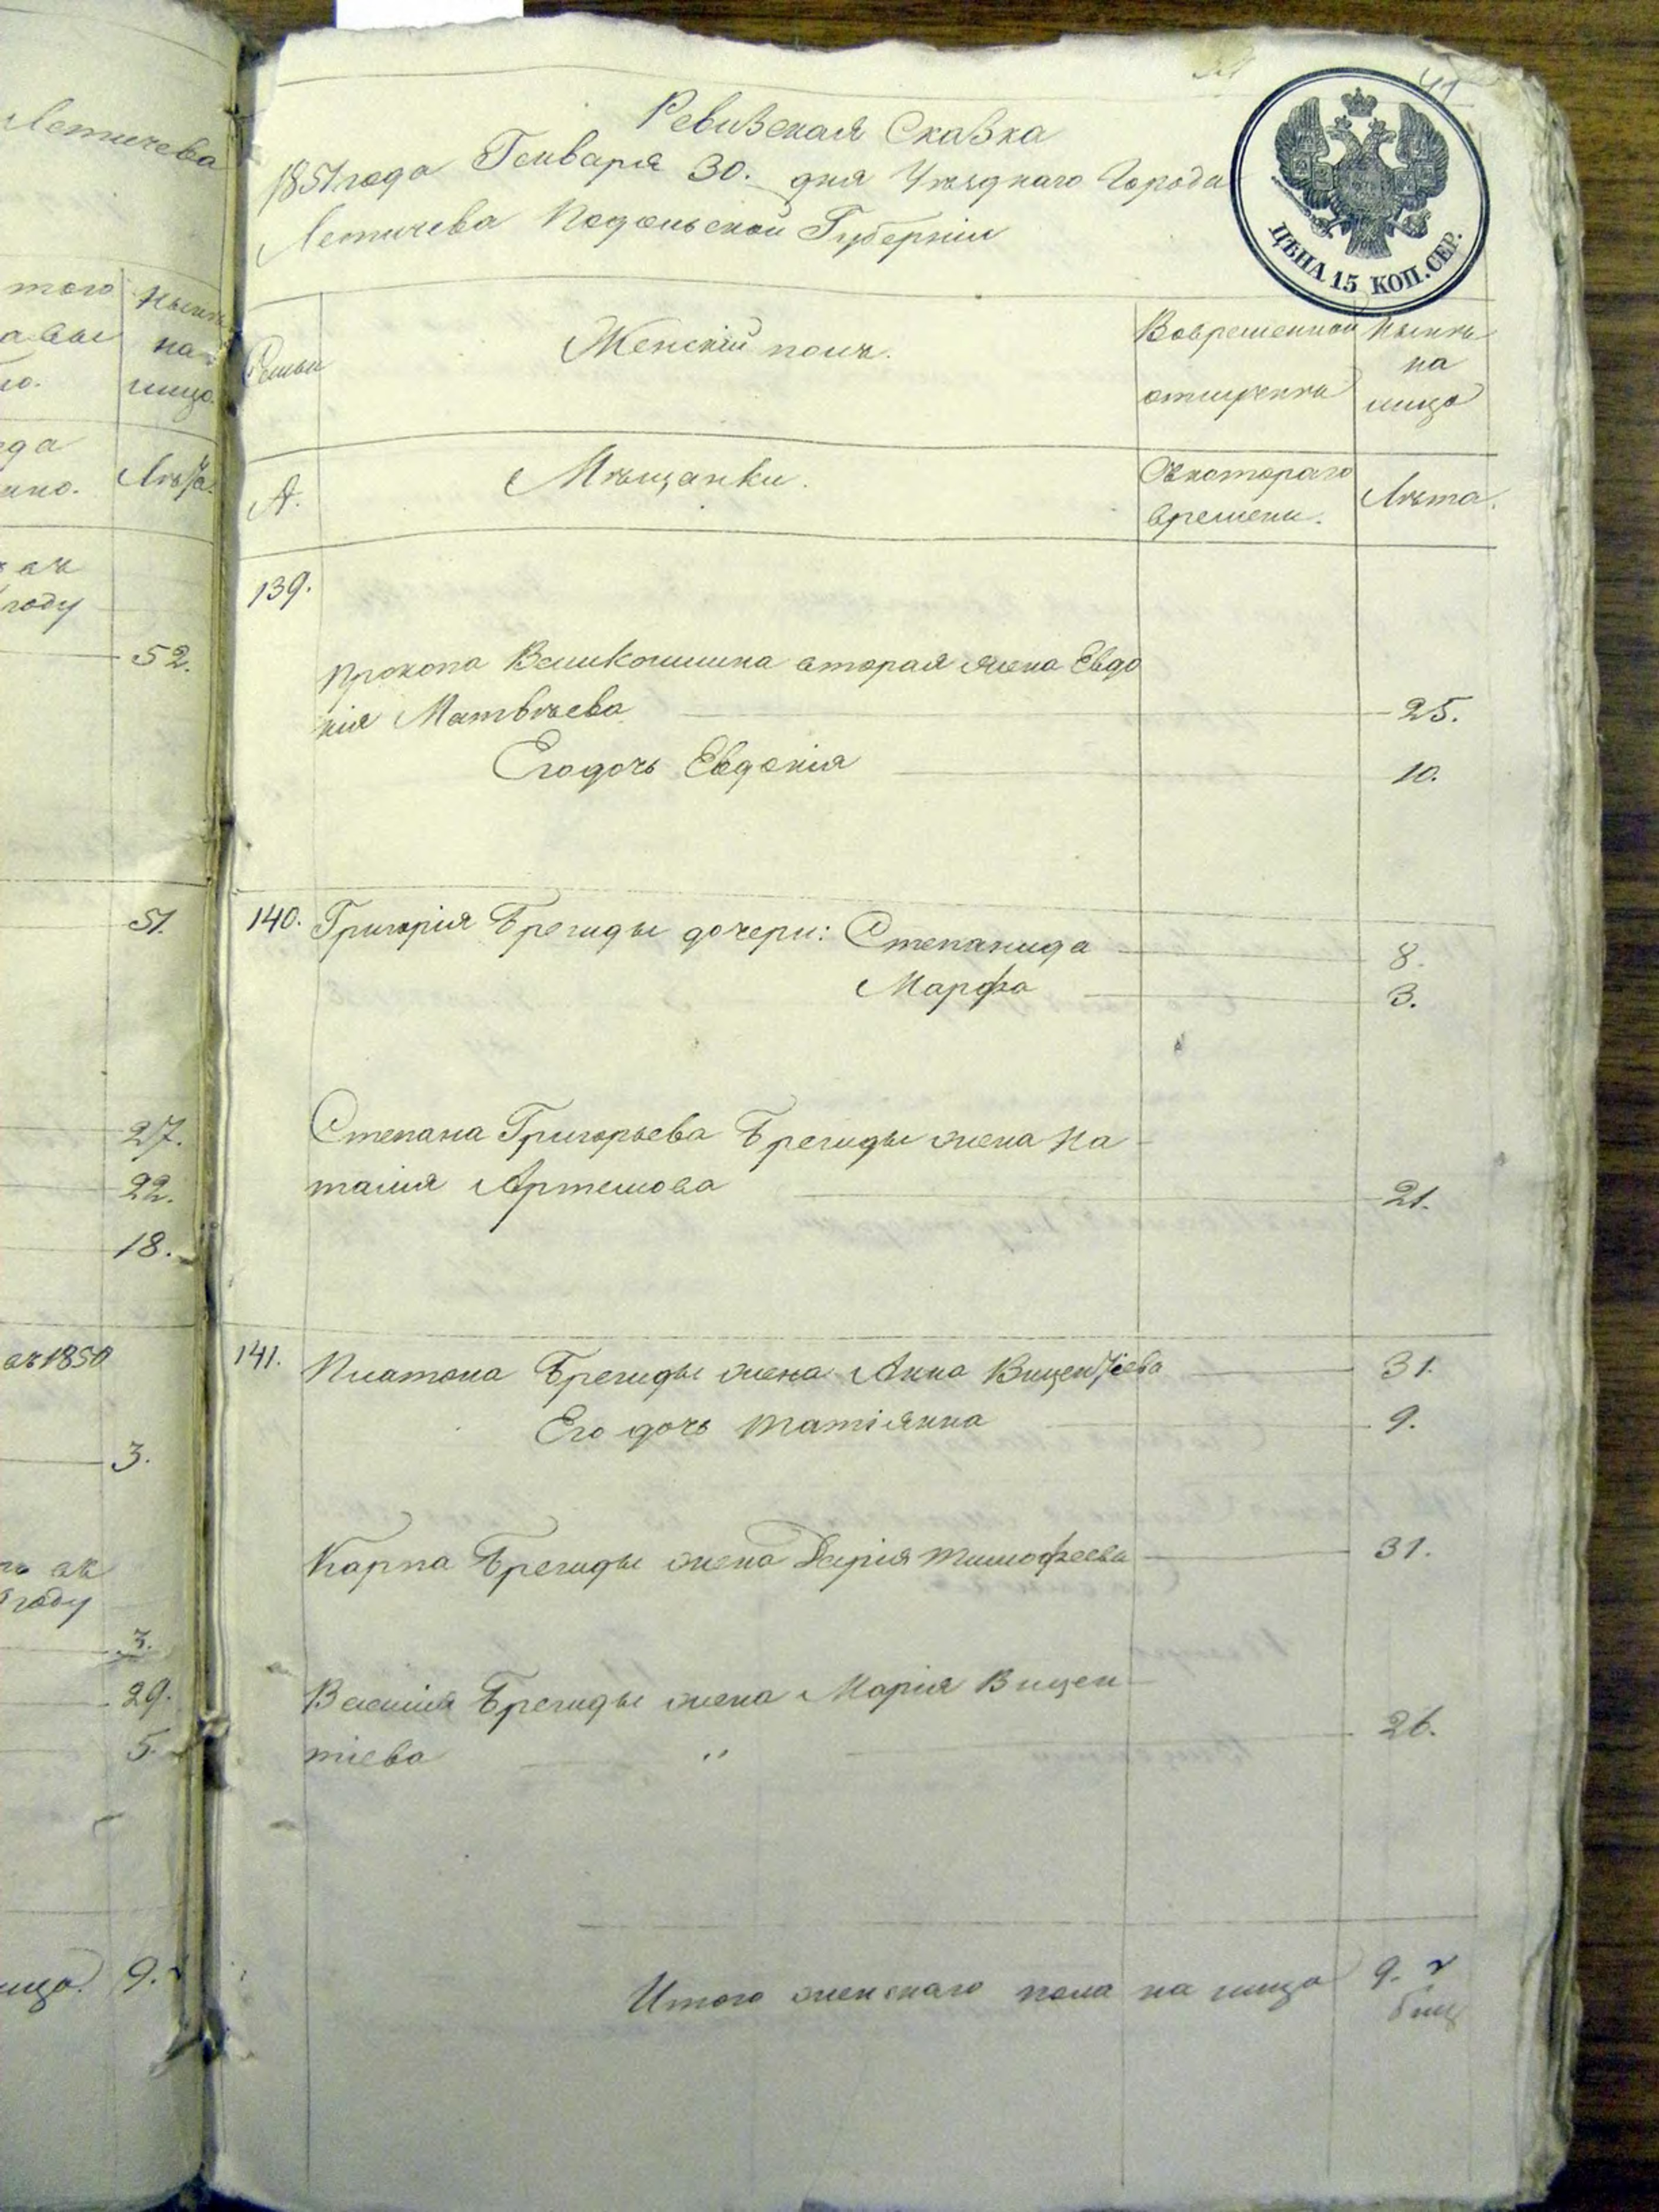 Летичева
Ревизская Сказка
1851 года Генваря 30. дня Уѣзднаго Города
Летичева Подольской Губерніи
ЦѢНА 15 КОП. СЕР.
41
того Нынѣ
на
лицо.
Лѣта.
году
52.
51.
27.
22.
18.
въ 1850
3.
въ
году
3.
29.
5.
лицо 9.
Семьи Женскій полъ. Вовременной Нынѣ
на
отлучкѣ лицо
А. Мѣщанки. Съкотораго Лѣта.
времени.
139.
Прокопа Великошина вторая жена Евдо
кія Матвѣева 25.
Его дочь Евдокія 10.
140. Григорія Брегиды дочери: Степанида 8.
Марфа 3.
Степана Григорьева Брегиды жена На
талія Артемова 21.
141. Платона Брегиды жена Анна Вицентіева 31.
Его дочь Татіянна 9.
Карпа Брегиды жена Дарія Тимофеева 31.
Василія Брегиды жена Марія Вицен
тіева " 26.
Итого женскаго пола на лицо 9.